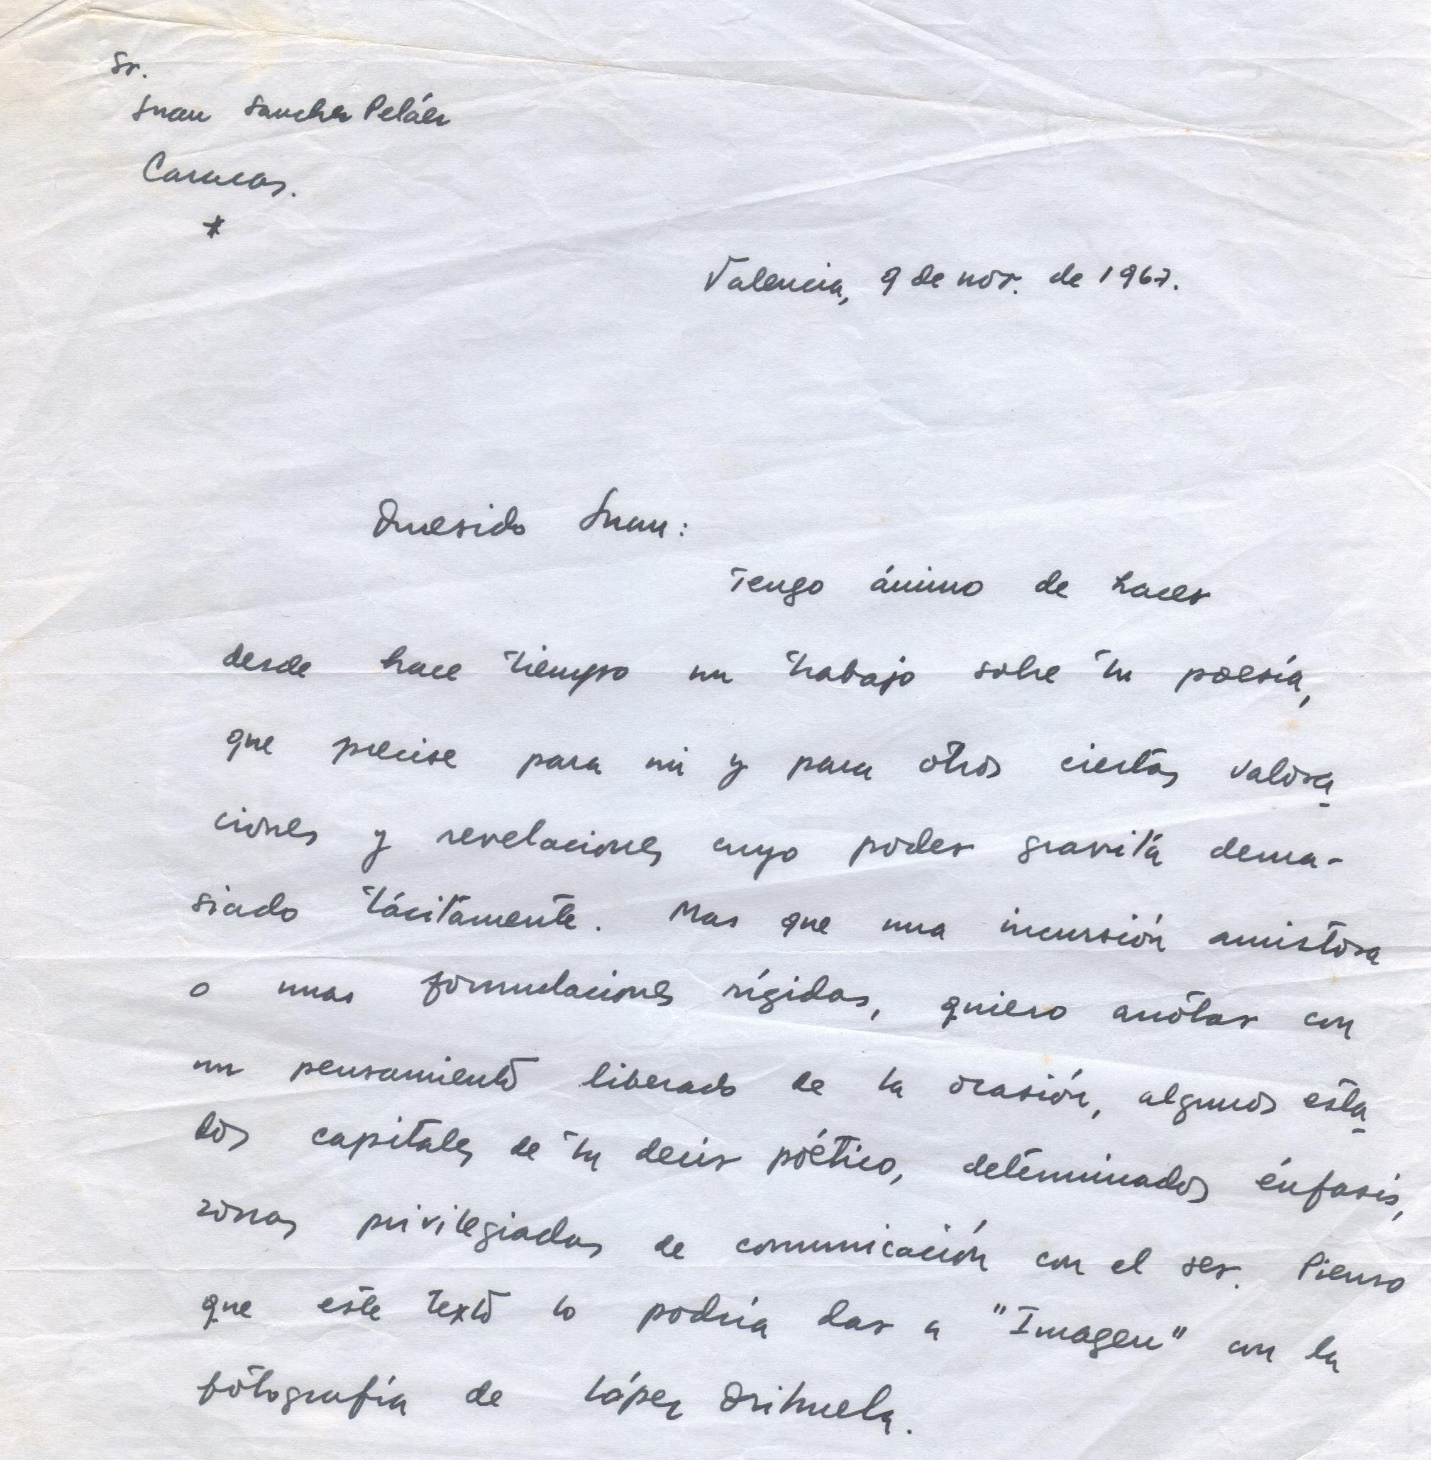 Sr.
Juan Sanchez Peláez
Caracas.
*
Valencia, 9 de nov. de 1967.
Querido Juan:
Tengo ánimo de hacer
desde hace tiempo un trabajo sobre tu poesía,
que precise para mi y para otros ciertas valora-
ciones y revelaciones cuyo poder gravita dema-
siado tácitamente. Mas que una incursión amistosa
o unas formulaciones rígidas, quiero anotar con
un pensamiento liberado de la ocasión, algunos esta-
dos capitales de tu decir poético, determinados énfasis,
zonas privilegiadas de comunicación con el ser. Pienso
que este texto lo podría dar a "Imagen" con la
fotografía de López Orihuela.